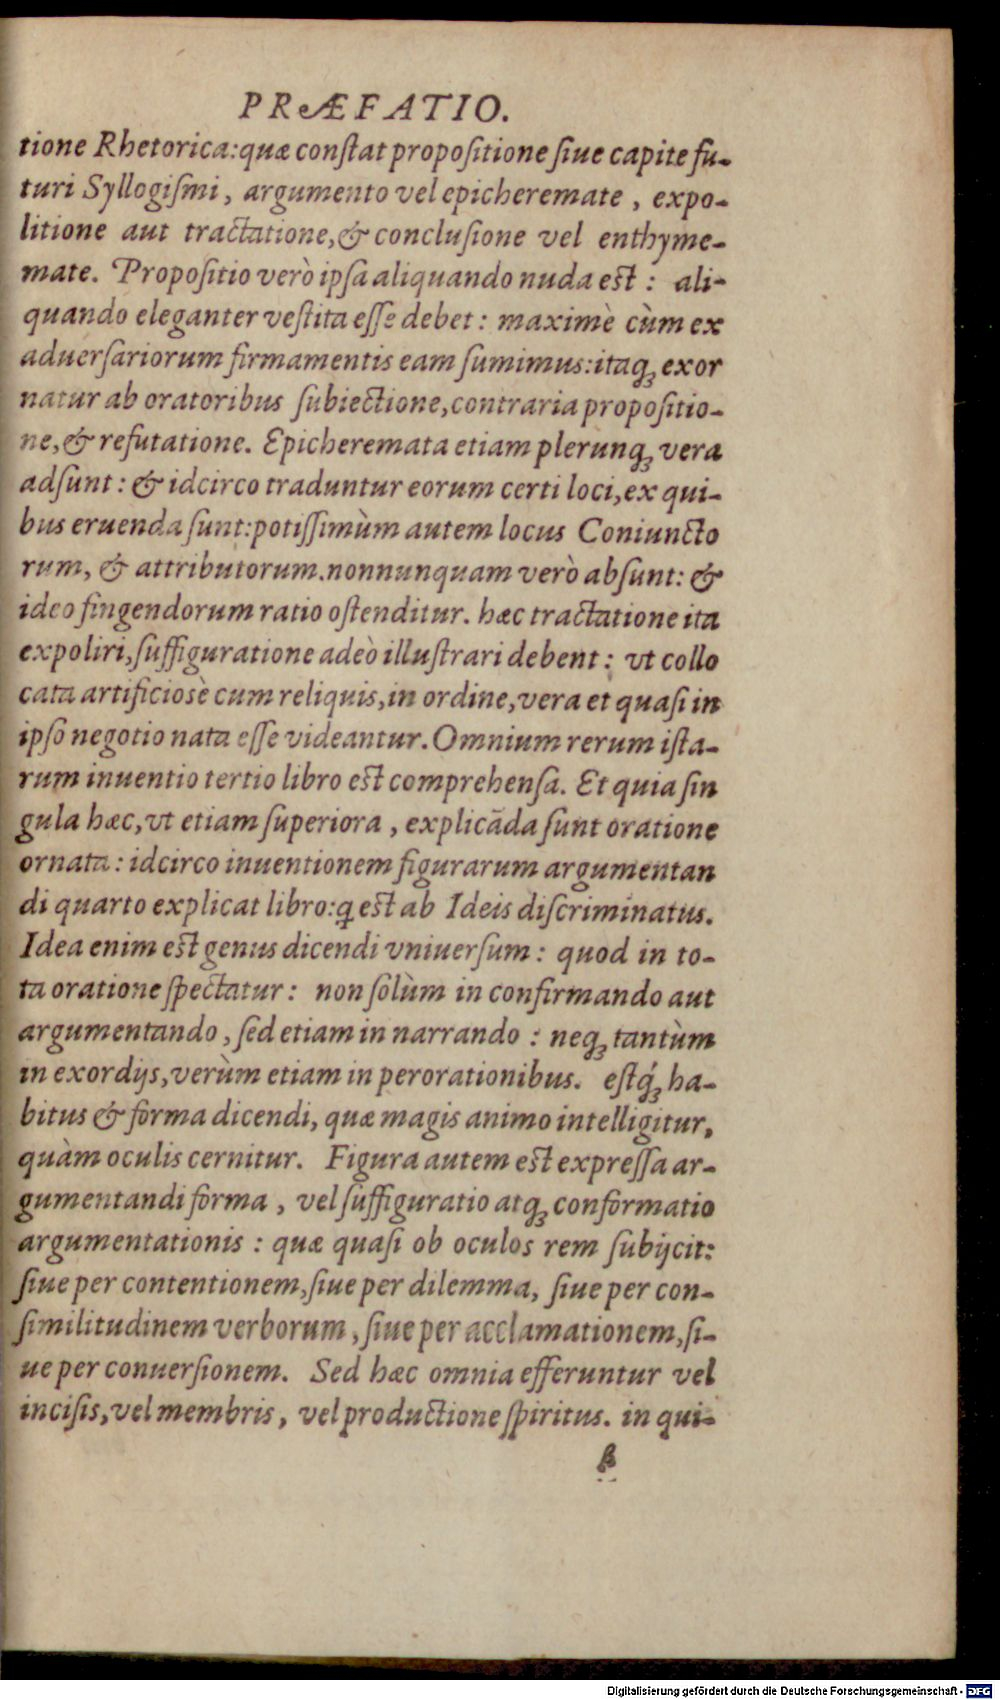 PRÆFATIO.
tione Rhetorica: quæ conſtat propoſitione ſiue capite fu-
turi Syllogiſmi, argumento vel epicheremate, expo-
litione aut tractatione, & concluſione vel enthyme-
mate. Propoſitio verò ipſa aliquando nuda est: ali-
quando eleganter veſtita eſſe debet: maximè cùm ex
aduerſariorum firmamentis eam ſumimus: itaqꝫ exor
natur ab oratoribus ſubiectione, contraria propoſitio-
ne, & refutatione. Epicheremata etiam plerunqꝫ vera
adſunt: & idcirco traduntur eorum certi loci, ex qui-
bus eruenda ſunt: potiſſimùm autem locus Coniuncto
rum, & attributorum. nonnunquam verò abſunt: &
ideo fingendorum ratio oſtenditur. hæc tractatione ita
expoliri, ſuffiguratione adeò illuſtrari debent: vt collo
cata artificiosè cum reliquis, in ordine, vera et quaſi in
ipſo negotio nata eſſe videantur. Omnium rerum iſta-
rum inuentio tertio libro est comprehenſa. Et quia ſin
gula hæc, vt etiam ſuperiora, explicãda ſunt oratione
ornata: idcirco inuentionem figurarum argumentan
di quarto explicat libro: ꝗ est ab Ideis diſcriminatus.
Idea enim est genus dicendi vniuerſum: quod in to-
ta oratione ſpectatur: non ſolùm in confirmando aut
argumentando, ſed etiam in narrando: neqꝫ tantùm
in exordijs, verùm etiam in perorationibus. eſtq́ꝫ ha-
bitus & forma dicendi, quæ magis animo intelligitur,
quàm oculis cernitur. Figura autem est expreſſa ar-
gumentandi forma, vel ſuffiguratio atqꝫ conformatio
argumentationis: quæ quaſi ob oculos rem ſubijcit:
ſiue per contentionem, ſiue per dilemma, ſiue per con-
ſimilitudinem verborum, ſiue per acclamationem, ſi-
ue per conuerſionem. Sed hæc omnia efferuntur vel
inciſis, vel membris, vel productione ſpiritus. in qui-
β
Digitalisierung gefördert durch die Deutsche Forschungsgemeinschaft - DFG